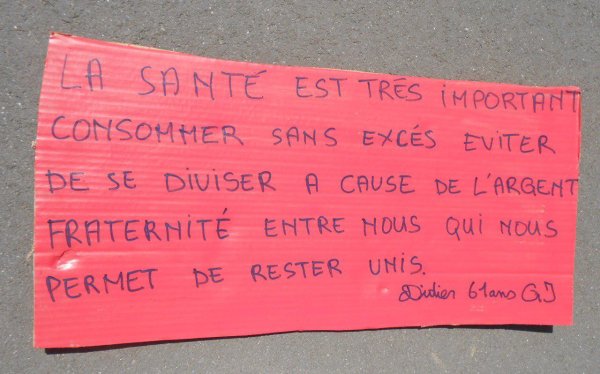 LA SANTÉ EST TRÉS iMPORTANT
CONSOMMER SANS EXCÉS EVITER
DE SE DIVISER A CAUSE DE L'ARGENT
FRATERNITÉ ENTRE NOUS QUI NOUS
PERMET DE RESTER UNIS.
Didier 61ans GJ